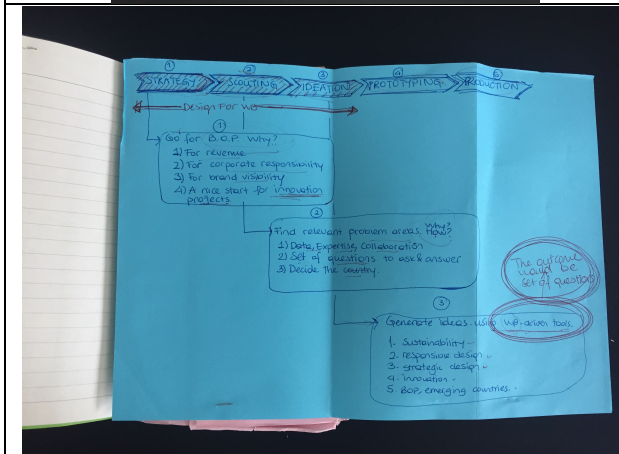 ① ② ③ ④ ⑤
STRATEGY SCOUTING IDEATION PROTOTYPING PRODUCTION
Design For WB
①
Go for B.O.P. Why?
1) For revenue
2) For corporate responsibility
3) For brand visibility
4) A nice start for innovation
projects
②
Find relevant problem areas. Why?
How?
1) Data, Expertise, Collaboration
2) Set of questions to ask & answer
3) Decide the country.
The outcome
would be
set of questions
③
Generate ideas using WB-driven tools.
1. Sustainability
2. responsible design
3. strategic design
4. innovation
5. BOP, emerging countries.